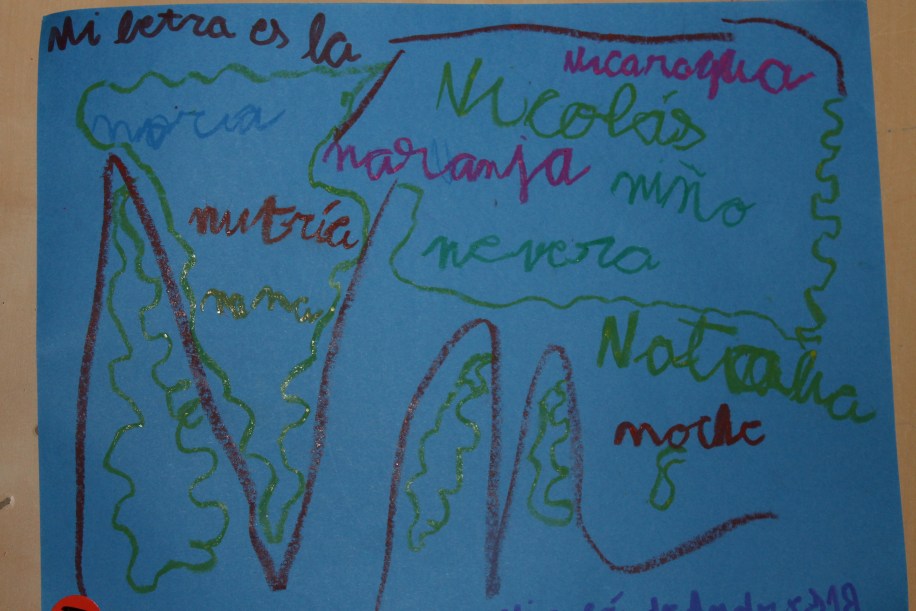 Mi letra es la
Nicaragua
noria
Nicolás
naranja
niño
nutría
nevera
Natalia
noche